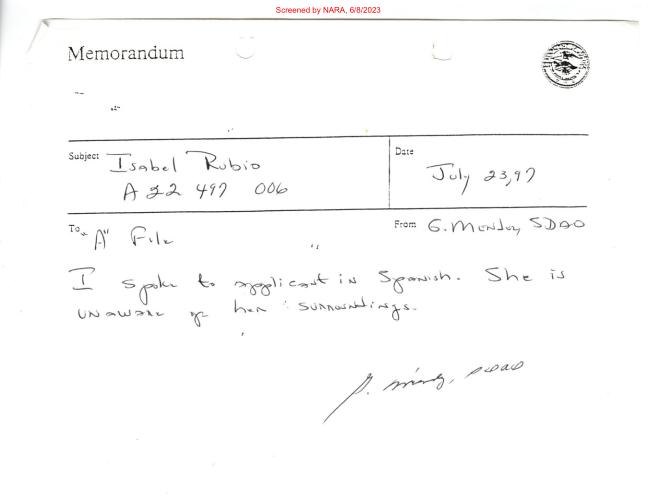 Screened by NARA, 6/8/2023
Memorandum
Subject Isabel Rubio
A 22 497 006
Date
July 23, 97
To "A" File
From G. Mendoz, SDAO
I spoke to applicant in Spanish. She is
unaware of her surroundings.
G. SDAO